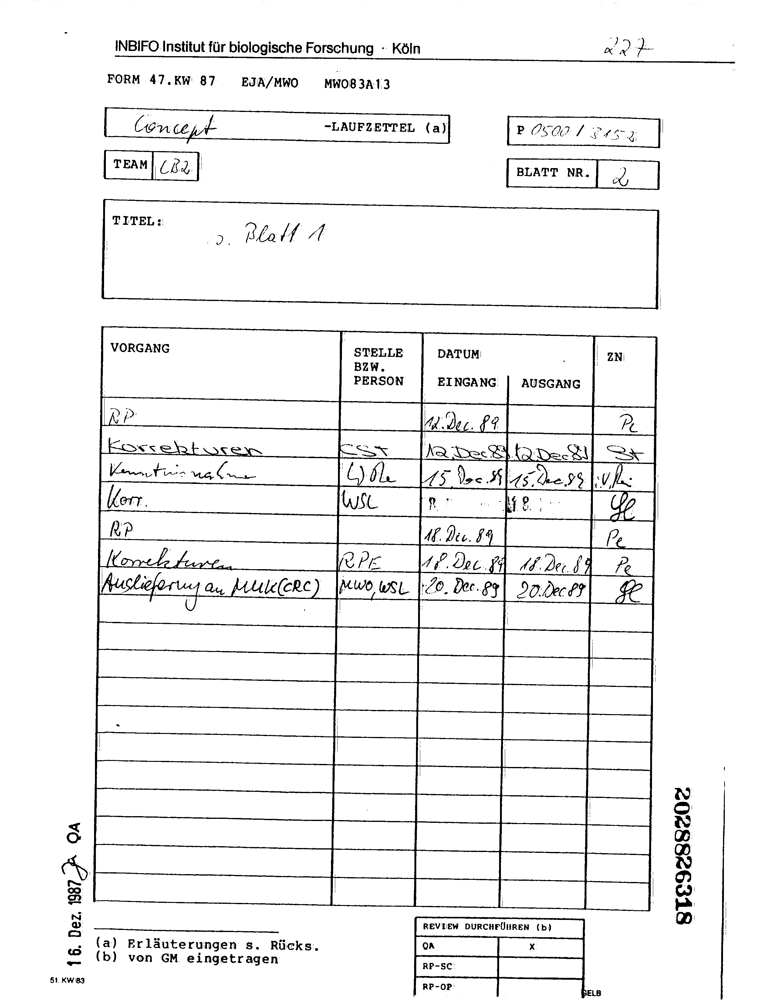 INBIFO Institut für biologische Forschung · Köln
227
FORM 47.KW 87 EJA/MWO MW083A13
Concept -LAUFZETTEL (a)
P 0500 / 3152
TEAM CB2
BLATT NR. 2
TITEL:
s. Blatt 1
VORGANG STELLE BZW. PERSON DATUM EINGANG AUSGANG ZN
RP 12. Dec. 89 Pe
Korrekturen CST 12. Dec 89 12 Dec 89 St
Kenntnisnahme 15. Dec. 89 15. Dec. 89
Korr. WSL
RP 18. Dec. 89 Pe
Korrekturen RPE 18. Dec. 89 18. Dec. 89 Pe
Auslieferung an MUK(CRC) MWO, WSL 20. Dec. 89 20. Dec 89
2028826318
16. Dez. 1987 QA
(a) Erläuterungen s. Rücks.
(b) von GM eingetragen
REVIEW DURCHFÜHREN (b)
QA X
RP-SC
RP-OP
51. KW 83
GELB